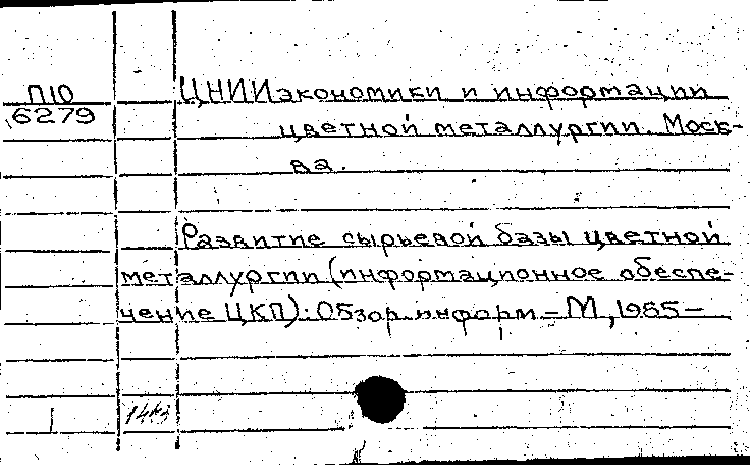 П10
6279
ЦНИИэкономики и информации
цветной металлургии. Моск-
ва.
Развитие сырьевой базы цветной
металлургии (информационное обеспе-
чение ЦКП): Обзор. информ – М, 1985 –